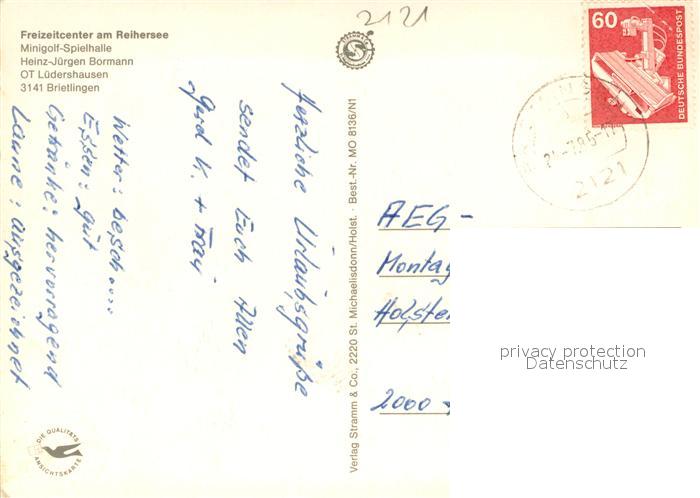 2121
Freizeitcenter am Reihersee
Minigolf-Spielhalle
Heinz-Jürgen Bormann
OT Lüdershausen
3141 Brietlingen
60
DEUTSCHE BUNDESPOST
2121
Herzliche Urlaubsgrüße
sendet Euch Allen
Gerd K. + Frau
Wetter: besch....
Essen: gut
Getränke: hervorragend
Laune: ausgezeichnet
Verlag Stramm & Co., 2220 St. Michaelisdonn/Holst. · Best.-Nr. MO 8136/N1
AEG -
Montag
Holste
2000
privacy protection
Datenschutz
DIE QUALITÄTS
ANSICHTSKARTE